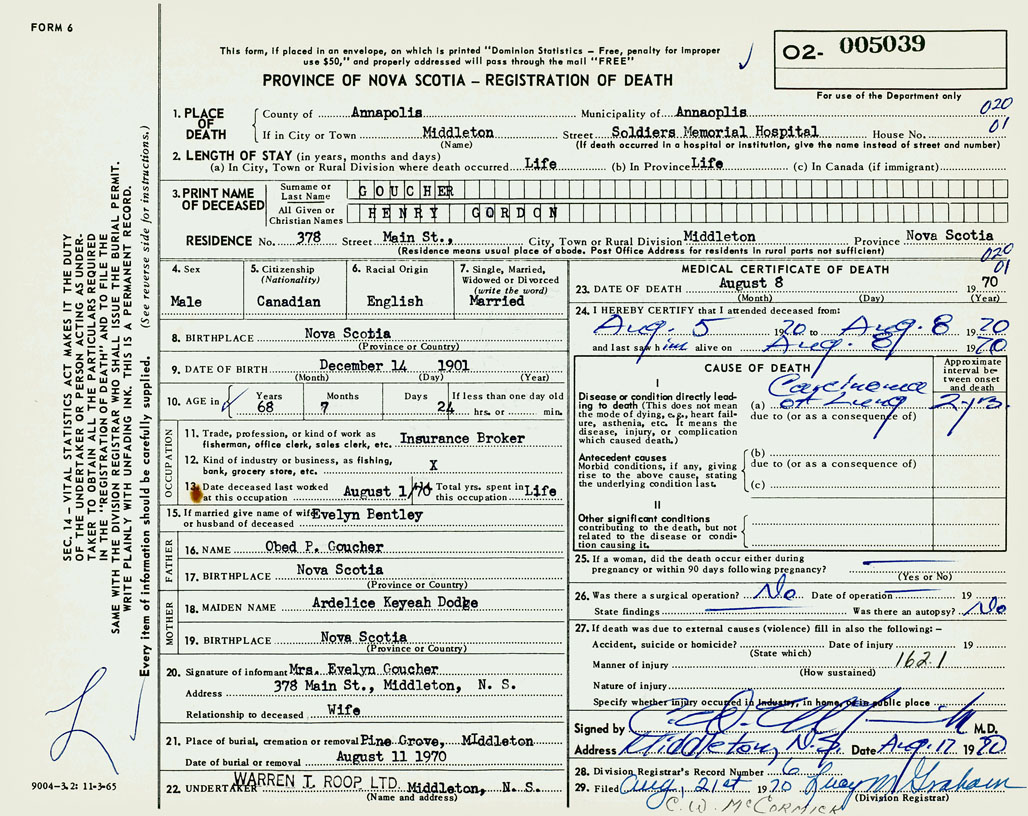 FORM 6
This form, if placed in an envelope, on which is printed "Dominion Statistics – Free, penalty for improper
use $50," and properly addressed will pass through the mail "FREE"
PROVINCE OF NOVA SCOTIA – REGISTRATION OF DEATH
02- 005039
For use of the Department only
020
01
1. PLACE OF DEATH
County of Annapolis Municipality of Annaoplis
If in City or Town Middleton Street Soldiers Memorial Hospital House No.
(Name) (If death occurred in a hospital or institution, give the name instead of street and number)
2. LENGTH OF STAY (in years, months and days)
(a) In City, Town or Rural Division where death occurred Life (b) In Province Life (c) In Canada (if immigrant)
3. PRINT NAME OF DECEASED
Surname or Last Name GOUCHER
All Given or Christian Names HENRY GORDON
RESIDENCE No. 378 Street Main St., City, Town or Rural Division Middleton Province Nova Scotia
(Residence means usual place of abode. Post Office Address for residents in rural parts not sufficient)
020
01
4. Sex
Male
5. Citizenship
(Nationality)
Canadian
6. Racial Origin
English
7. Single, Married,
Widowed or Divorced
(write the word)
Married
8. BIRTHPLACE Nova Scotia
(Province or Country)
9. DATE OF BIRTH December 14 1901
(Month) (Day) (Year)
10. AGE in Years Months Days If less than one day old
68 7 24 hrs. or min.
OCCUPATION
11. Trade, profession, or kind of work as
fisherman, office clerk, sales clerk, etc. Insurance Broker
12. Kind of industry or business, as fishing,
bank, grocery store, etc. X
13. Date deceased last worked
at this occupation August 1/70 Total yrs. spent in
this occupation Life
15. If married give name of wife
or husband of deceased Evelyn Bentley
FATHER
16. NAME Obed P. Goucher
17. BIRTHPLACE Nova Scotia
(Province or Country)
MOTHER
18. MAIDEN NAME Ardelice Keyeah Dodge
19. BIRTHPLACE Nova Scotia
(Province or Country)
20. Signature of informant Mrs. Evelyn Goucher
Address 378 Main St., Middleton, N. S.
Relationship to deceased Wife
21. Place of burial, cremation or removal Pine Grove, MIddleton
Date of burial or removal August 11 1970
22. UNDERTAKER WARREN T. ROOP LTD. Middleton, N. S.
(Name and address)
MEDICAL CERTIFICATE OF DEATH
23. DATE OF DEATH August 8 19 70
(Month) (Day) (Year)
24. I HEREBY CERTIFY that I attended deceased from:
Aug. 5 1970 to Aug. 8 1970
and last saw him alive on Aug. 8 1970
CAUSE OF DEATH
Approximate
interval be-
tween onset
and death
I
Disease or condition directly lead-
ing to death (This does not mean
the mode of dying, e.g., heart fail-
ure, asthenia, etc. It means the
disease, injury, or complication
which caused death.)
Carcinoma
(a) of Lung 2 yrs.
due to (or as a consequence of)
Antecedent causes
Morbid conditions, if any, giving
rise to the above cause, stating
the underlying condition last.
(b)
due to (or as a consequence of)
(c)
II
Other significant conditions
contributing to the death, but not
related to the disease or condi-
tion causing it.
25. If a woman, did the death occur either during
pregnancy or within 90 days following pregnancy?
(Yes or No)
26. Was there a surgical operation? No Date of operation 19
State findings Was there an autopsy? No
27. If death was due to external causes (violence) fill in also the following: –
Accident, suicide or homicide? Date of injury 19
(State which)
Manner of injury 162.1
(How sustained)
Nature of injury
Specify whether injury occurred in industry, in home, or in public place
Signed by M.D.
Address Middleton, N.S. Date Aug. 17 1970
28. Division Registrar's Record Number 6
29. Filed Aug. 21st 1970 Lucy M Graham
(Division Registrar)
C. W. McCORMICK
SEC. 14 – VITAL STATISTICS ACT MAKES IT THE DUTY
OF THE UNDERTAKER OR PERSON ACTING AS UNDER-
TAKER TO OBTAIN ALL THE PARTICULARS REQUIRED
IN THE "REGISTRATION OF DEATH" AND TO FILE THE
SAME WITH THE DIVISION REGISTRAR WHO SHALL ISSUE THE BURIAL PERMIT.
WRITE PLAINLY WITH UNFADING INK. THIS IS A PERMANENT RECORD.
Every item of information should be carefully supplied. (See reverse side for instructions.)
9004-3.2: 11-3-65